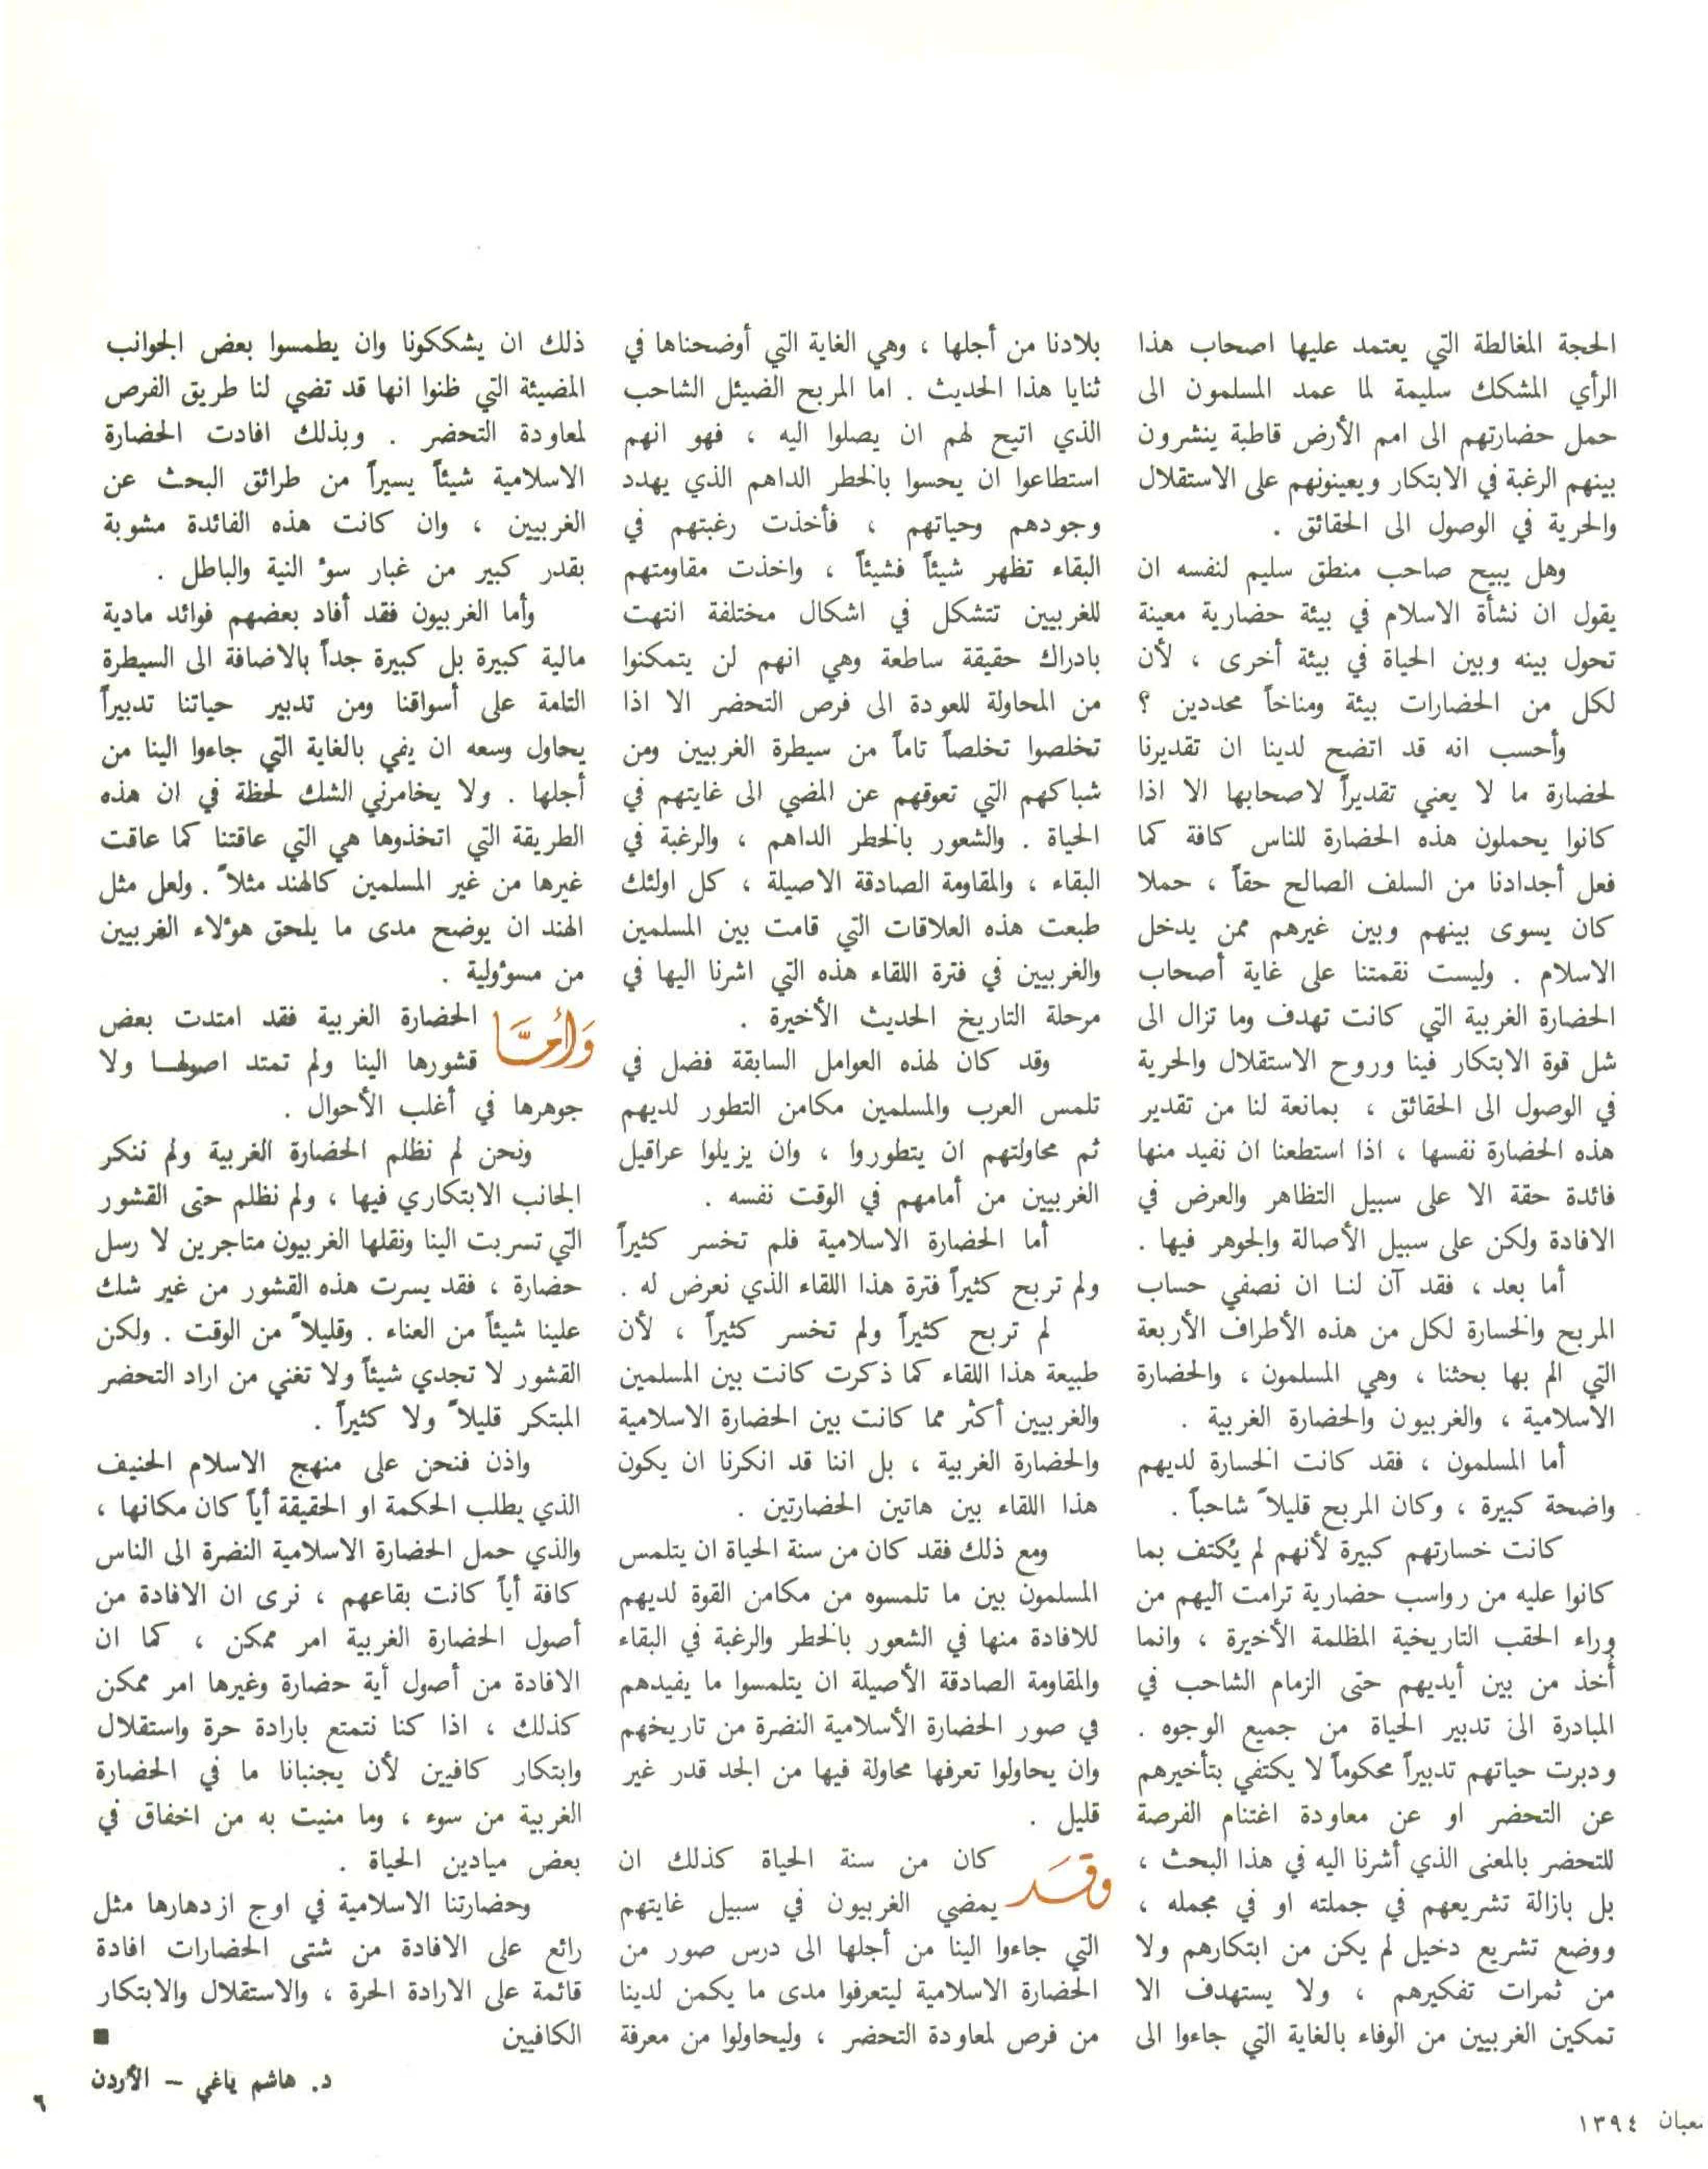 الحجة المغالطة التي يعتمد عليها اصحاب هذا
الرأي المشكك سليمة لما عمد المسلمون الى
حمل حضارتهم الى امم الأرض قاطبة ينشرون
بينهم الرغبة في الابتكار ويعينونهم على الاستقلال
والحرية في الوصول الى الحقائق .
وهل يبيح صاحب منطق سليم لنفسه ان
يقول ان نشأة الاسلام في بيئة حضارية معينة
تحول بينه وبين الحياة في بيئة أخرى ، لأن
لكل من الحضارات بيئة ومناخاً محددين ؟
وأحسب انه قد اتضح لدينا ان تقديرنا
لحضارة ما لا يعني تقديراً لاصحابها الا اذا
كانوا يحملون هذه الحضارة للناس كافة كما
فعل أجدادنا من السلف الصالح حقاً ، حملا
كان يسوى بينهم وبين غيرهم ممن يدخل
الاسلام . وليست نقمتنا على غاية أصحاب
الحضارة الغربية التي كانت تهدف وما تزال الى
شل قوة الابتكار فينا وروح الاستقلال والحرية
في الوصول الى الحقائق ، بمانعة لنا من تقدير
هذه الحضارة نفسها ، اذا استطعنا ان نفيد منها
فائدة حقة الا على سبيل التظاهر والعرض في
الافادة ولكن على سبيل الأصالة والجوهر فيها .
أما بعد ، فقد آن لنا ان نصفي حساب
المربح والخسارة لكل من هذه الأطراف الأربعة
التي الم بها بحثنا ، وهي المسلمون ، والحضارة
الاسلامية ، والغربيون والحضارة الغربية .
أما المسلمون ، فقد كانت الخسارة لديهم
واضحة كبيرة ، وكان المربح قليلاً شاحباً .
كانت خسارتهم كبيرة لأنهم لم يُكتف بما
كانوا عليه من رواسب حضارية ترامت اليهم من
وراء الحقب التاريخية المظلمة الأخيرة ، وانما
أُخذ من بين أيديهم حتى الزمام الشاحب في
المبادرة الى تدبير الحياة من جميع الوجوه .
ودبرت حياتهم تدبيراً محكوماً لا يكتفي بتأخيرهم
عن التحضر او عن معاودة اغتنام الفرصة
للتحضر بالمعنى الذي أشرنا اليه في هذا البحث ،
بل بازالة تشريعهم في جملته او في مجمله ،
ووضع تشريع دخيل لم يكن من ابتكارهم ولا
من ثمرات تفكيرهم ، ولا يستهدف الا
تمكين الغربيين من الوفاء بالغاية التي جاءوا الى
بلادنا من أجلها ، وهي الغاية التي أوضحناها في
ثنايا هذا الحديث . اما المربح الضئيل الشاحب
الذي اتيح لهم ان يصلوا اليه ، فهو انهم
استطاعوا ان يحسوا بالخطر الداهم الذي يهدد
وجودهم وحياتهم ، فأخذت رغبتهم في
البقاء تظهر شيئاً فشيئاً ، واخذت مقاومتهم
للغربيين تتشكل في اشكال مختلفة انتهت
بادراك حقيقة ساطعة وهي انهم لن يتمكنوا
من المحاولة للعودة الى فرص التحضر الا اذا
تخلصوا تخلصاً تاماً من سيطرة الغربيين ومن
شباكهم التي تعوقهم عن المضي الى غايتهم في
الحياة . والشعور بالخطر الداهم ، والرغبة في
البقاء ، والمقاومة الصادقة الاصيلة ، كل اولئك
طبعت هذه العلاقات التي قامت بين المسلمين
والغربيين في فترة اللقاء هذه التي اشرنا اليها في
مرحلة التاريخ الحديث الأخيرة .
وقد كان لهذه العوامل السابقة فضل في
تلمس العرب والمسلمين مكامن التطور لديهم
ثم محاولتهم ان يتطوروا ، وان يزيلوا عراقيل
الغربيين من أمامهم في الوقت نفسه .
أما الحضارة الاسلامية فلم تخسر كثيراً
ولم تربح كثيراً فترة هذا اللقاء الذي نعرض له .
لم تربح كثيراً ولم تخسر كثيراً ، لأن
طبيعة هذا اللقاء كما ذكرت كانت بين المسلمين
والغربيين أكثر مما كانت بين الحضارة الاسلامية
والحضارة الغربية ، بل اننا قد انكرنا ان يكون
هذا اللقاء بين هاتين الحضارتين .
ومع ذلك فقد كان من سنة الحياة ان يتلمس
المسلمون بين ما تلمسوه من مكامن القوة لديهم
للافادة منها في الشعور بالخطر والرغبة في البقاء
والمقاومة الصادقة الأصيلة ان يتلمسوا ما يفيدهم
في صور الحضارة الأسلامية النضرة من تاريخهم
وان يحاولوا تعرفها محاولة فيها من الجد قدر غير
قليل .
وقد كان من سنة الحياة كذلك ان
يمضي الغربيون في سبيل غايتهم
التي جاءوا الينا من أجلها الى درس صور من
الحضارة الاسلامية ليتعرفوا مدى ما يكمن لدينا
من فرص لمعاودة التحضر ، وليحاولوا من معرفة
ذلك ان يشككونا وان يطمسوا بعض الجوانب
المضيئة التي ظنوا انها قد تضي لنا طريق الفرص
لمعاودة التحضر . وبذلك افادت الحضارة
الاسلامية شيئاً يسيراً من طرائق البحث عن
الغربيين ، وان كانت هذه الفائدة مشوبة
بقدر كبير من غبار سوء النية والباطل .
وأما الغربيون فقد أفاد بعضهم فوائد مادية
مالية كبيرة بل كبيرة جداً بالاضافة الى السيطرة
التامة على أسواقنا ومن تدبير حياتنا تدبيراً
يحاول وسعه ان يفي بالغاية التي جاءوا الينا من
أجلها . ولا يخامرني الشك لحظة في ان هذه
الطريقة التي اتخذوها هي التي عاقتنا كما عاقت
غيرها من غير المسلمين كالهند مثلاً . ولعل مثل
الهند ان يوضح مدى ما يلحق هؤلاء الغربيين
من مسؤولية .
وَأمَّا الحضارة الغربية فقد امتدت بعض
قشورها الينا ولم تمتد اصولها ولا
جوهرها في أغلب الأحوال .
ونحن لم نظلم الحضارة الغربية ولم ننكر
الجانب الابتكاري فيها ، ولم نظلم حتى القشور
التي تسربت الينا ونقلها الغربيون متاجرين لا رسل
حضارة ، فقد يسرت هذه القشور من غير شك
علينا شيئاً من العناء . وقليلاً من الوقت . ولكن
القشور لا تجدي شيئاً ولا تغني من اراد التحضر
المبتكر قليلاً ولا كثيراً .
واذن فنحن على منهج الاسلام الحنيف
الذي يطلب الحكمة او الحقيقة أياً كان مكانها ،
والذي حمل الحضارة الاسلامية النضرة الى الناس
كافة أياً كانت بقاعهم ، نرى ان الافادة من
أصول الحضارة الغربية امر ممكن ، كما ان
الافادة من أصول أية حضارة وغيرها امر ممكن
كذلك ، اذا كنا نتمتع بارادة حرة واستقلال
وابتكار كافيين لأن يجنبانا ما في الحضارة
الغربية من سوء ، وما منيت به من اخفاق في
بعض ميادين الحياة .
وحضارتنا الاسلامية في اوج ازدهارها مثل
رائع على الافادة من شتى الحضارات افادة
قائمة على الارادة الحرة ، والاستقلال والابتكار
الكافيين ■
د. هاشم ياغي – الأردن
عبان ١٣٩٤
٦